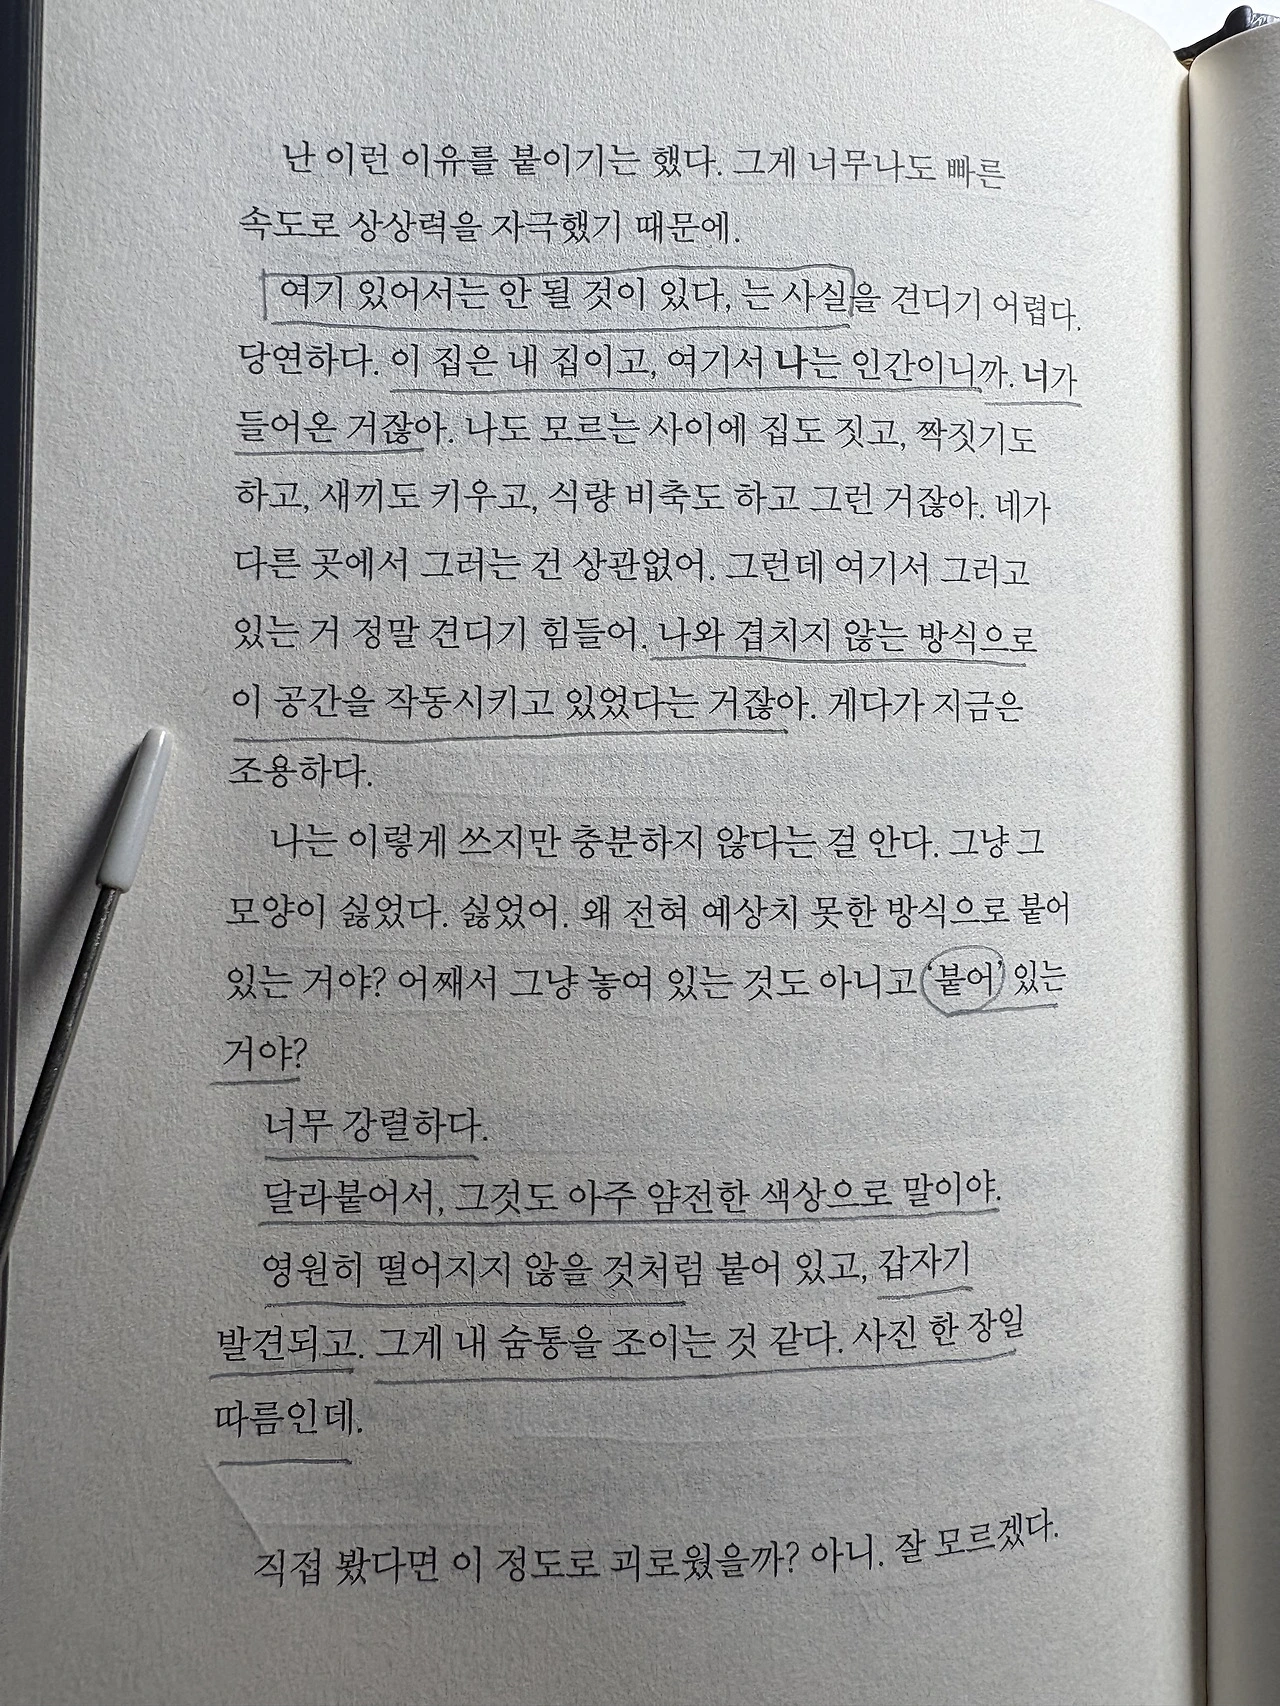 난 이런 이유를 붙이기는 했다. 그게 너무나도 빠른
속도로 상상력을 자극했기 때문에.
여기 있어서는 안 될 것이 있다, 는 사실을 견디기 어렵다.
당연하다. 이 집은 내 집이고, 여기서 나는 인간이니까. 너가
들어온 거잖아. 나도 모르는 사이에 집도 짓고, 짝짓기도
하고, 새끼도 키우고, 식량 비축도 하고 그런 거잖아. 네가
다른 곳에서 그러는 건 상관없어. 그런데 여기서 그러고
있는 거 정말 견디기 힘들어. 나와 겹치지 않는 방식으로
이 공간을 작동시키고 있었다는 거잖아. 게다가 지금은
조용하다.
나는 이렇게 쓰지만 충분하지 않다는 걸 안다. 그냥 그
모양이 싫었다. 싫었어. 왜 전혀 예상치 못한 방식으로 붙어
있는 거야? 어째서 그냥 놓여 있는 것도 아니고 ‘붙어’ 있는
거야?
너무 강렬하다.
달라붙어서, 그것도 아주 얌전한 색상으로 말이야.
영원히 떨어지지 않을 것처럼 붙어 있고, 갑자기
발견되고. 그게 내 숨통을 조이는 것 같다. 사진 한 장일
따름인데.
직접 봤다면 이 정도로 괴로웠을까? 아니. 잘 모르겠다.